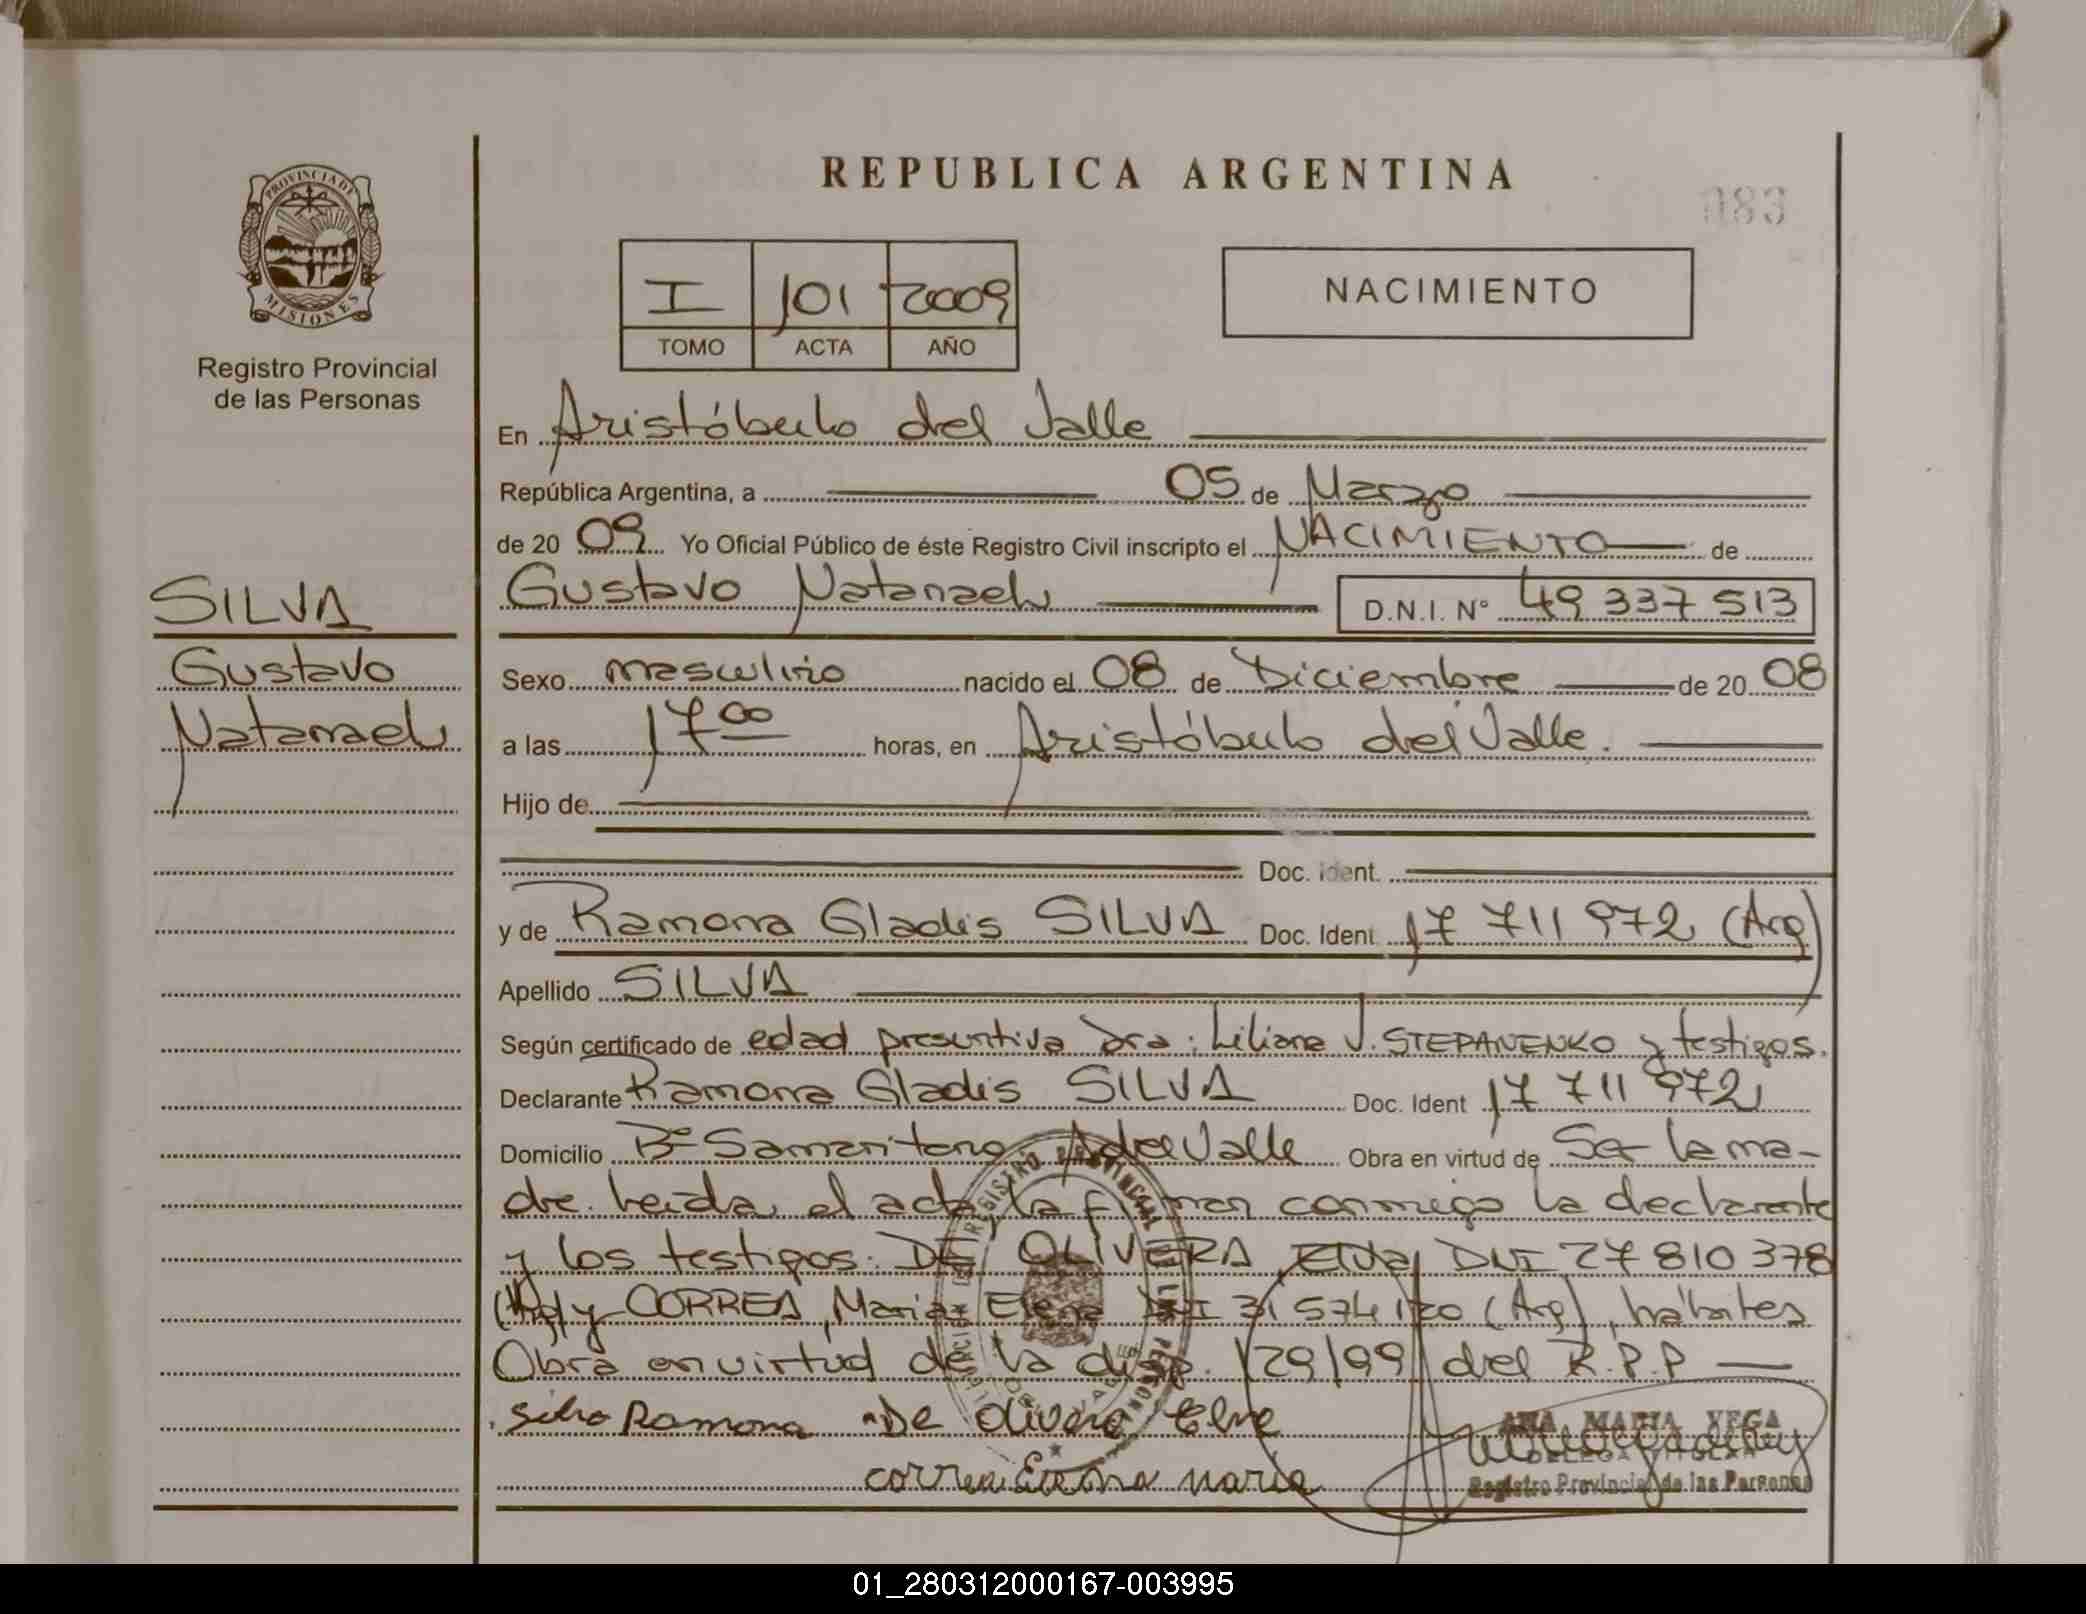 REPUBLICA ARGENTINA
083
PROVINCIA DE
MISIONES
Registro Provincial
de las Personas
I 101 2009
TOMO ACTA AÑO
NACIMIENTO
En Aristóbulo del Valle
República Argentina, a 05 de Marzo
de 20 09 Yo Oficial Público de éste Registro Civil inscripto el NACIMIENTO de
Gustavo Natanael D.N.I. N° 49 337 513
SILVA
Gustavo
Natanael
Sexo masculino nacido el 08 de Diciembre de 20 08
a las 17 00 horas, en Aristóbulo del Valle.
Hijo de
Doc. Ident.
y de Ramona Gladis SILVA Doc. Ident 17 711 972 (Arg)
Apellido SILVA
Según certificado de edad presuntiva Dra: Liliana J. STEPANENKO y testigos.
Declarante Ramona Gladis SILVA Doc. Ident 17 711 972
Domicilio B° Samaritano A del Valle Obra en virtud de Ser la ma-
dre. Leída el acta la firman conmigo la declarante
y los testigos: DE OLIVERA, Elva, DNI 27 810 378
(Arg) y CORREA, Maria Elena DNI 31 574 120 (Arg), hábiles
Obra en virtud de la disp. 129/99 del R.P.P
Silva Ramona De Olivera Elva
correa Elena maria
ANA MARIA VEGA
DELEGA TITULAR
Registro Provincial de las Personas
01_280312000167-003995